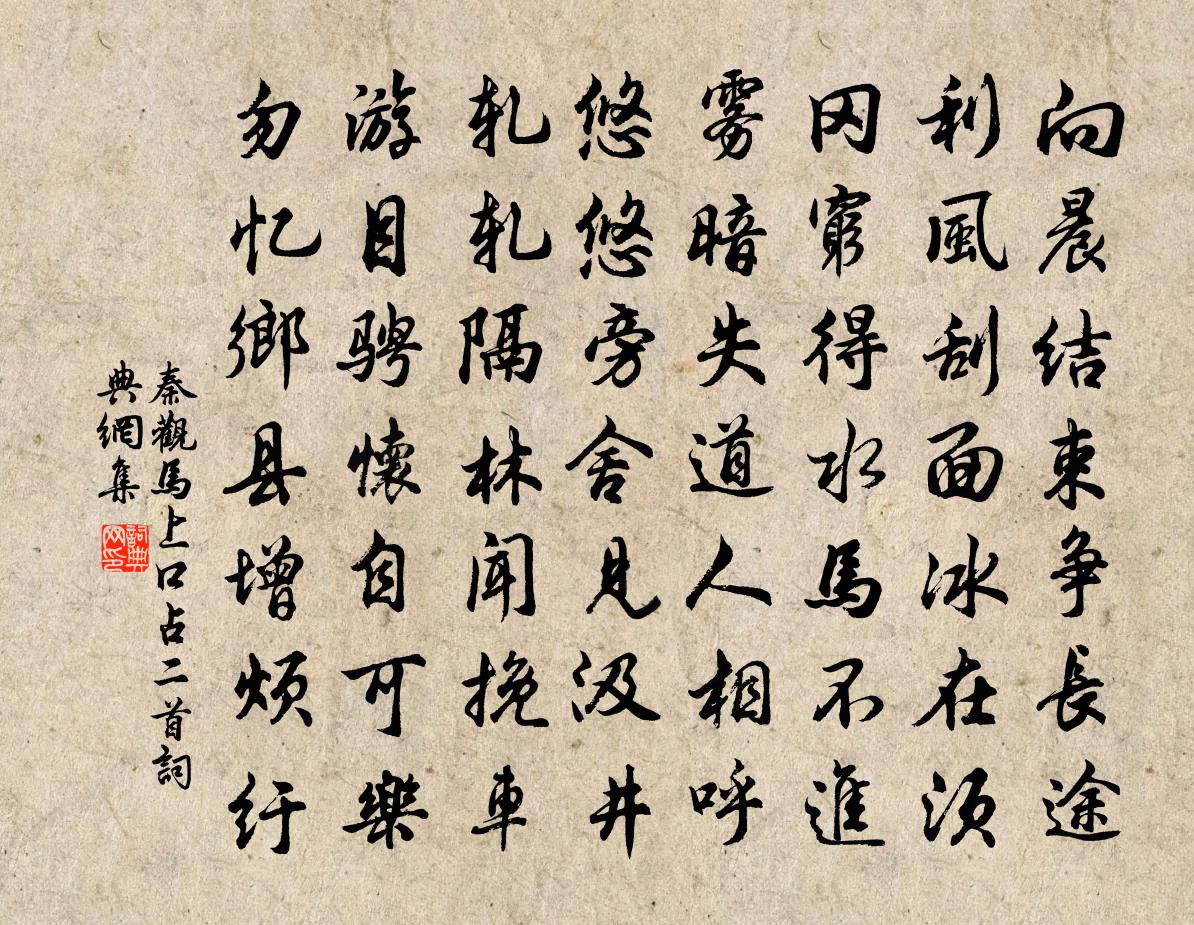 向晨结束争長途
利風刮面冰在须
冈窮得水馬不進
雾暗失道人相呼
悠悠旁舍見汲井
軋軋隔林闻挽車
游目骋懷自可樂
勿忆鄉县增烦纡
秦觀馬上口占二首詞
典網集
詞典
网印